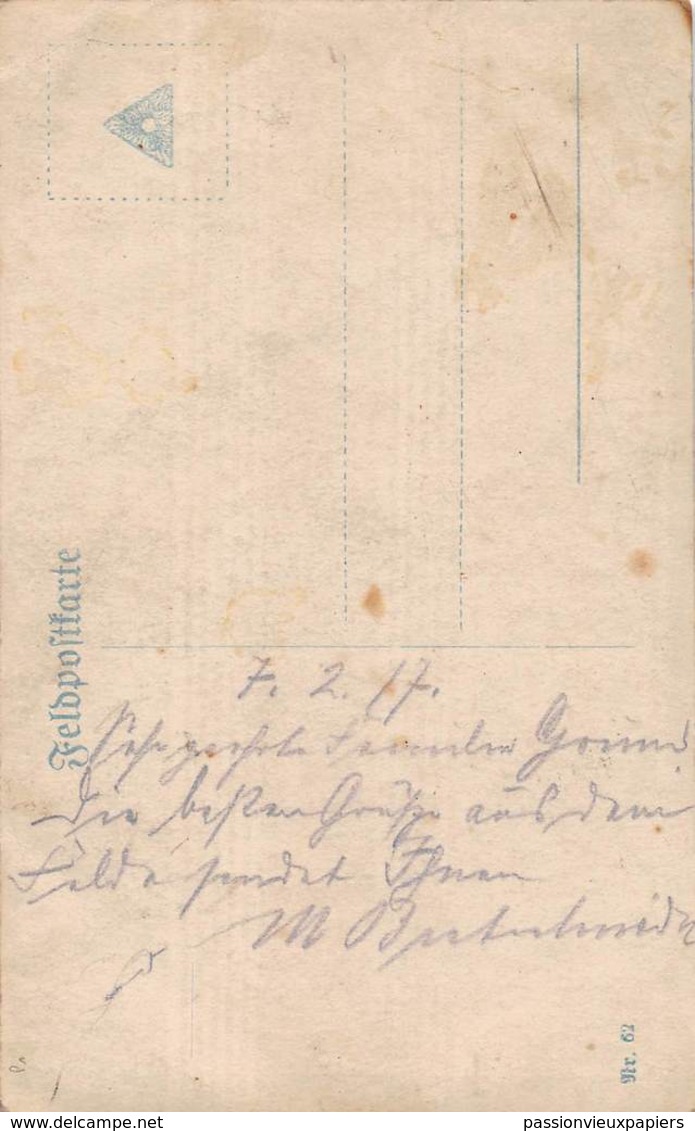 Feldpostkarte
7. 2. 17.
Sehr geehrte Familie
Die besten Grüße aus dem
Felde sendet Ihnen
M
Nr. 62
delcampe.net
passionvieuxpapiers